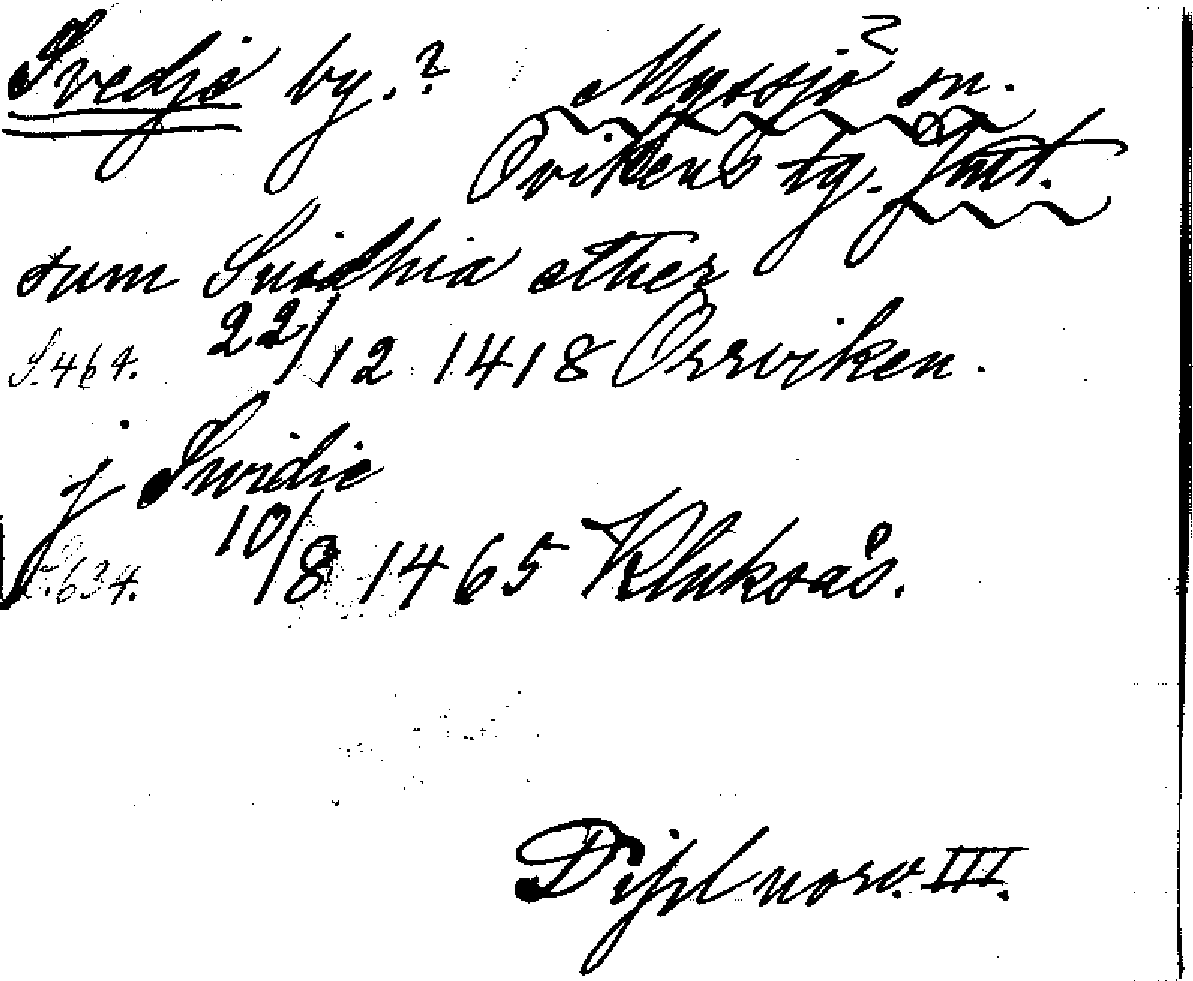 Svedje by.? Myssjö sn. ?
Ovikens tg. Jmt.
sum Suidhia ether
S.464. 22/12 1418 Orrviken.
j Swidie
S.634. 10/8 1465 Kluksås.
Dipl norv. III.